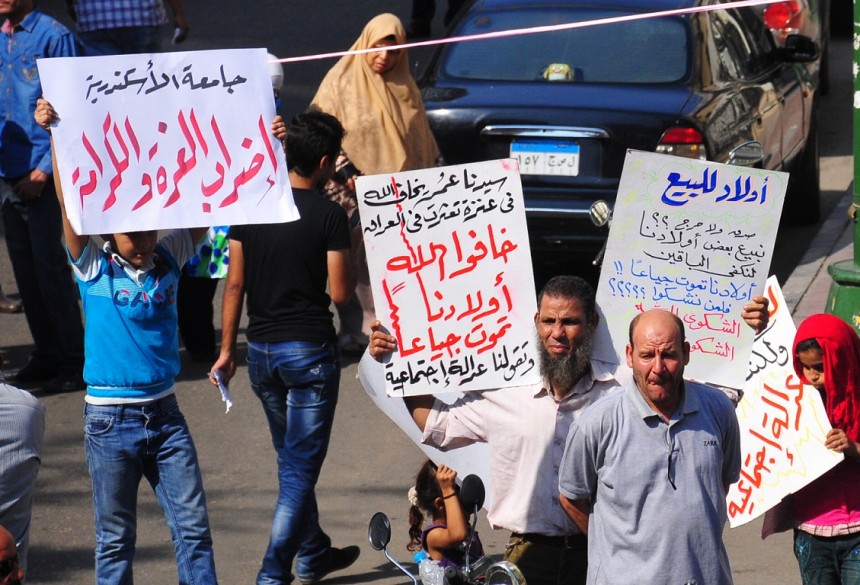 جامعة الأسكندرية
إضراب العزة والكرامة
سيدنا عمر يخاف الله
فى عنزة تعثرت فى العراق
خافوا الله
أولادنا
تموت جياعاً
وتقولنا عدالة إجتماعية
أولاد للبيع
صدق ولا حرج ؟؟
نبيع بعض أولادنا
لنكفى الباقين
أولادنا تموت جياعاً !!
فلمن نشكوا ؟؟؟؟؟
الشكوى
الشكوى
عدالة إجتماعية
ZARA